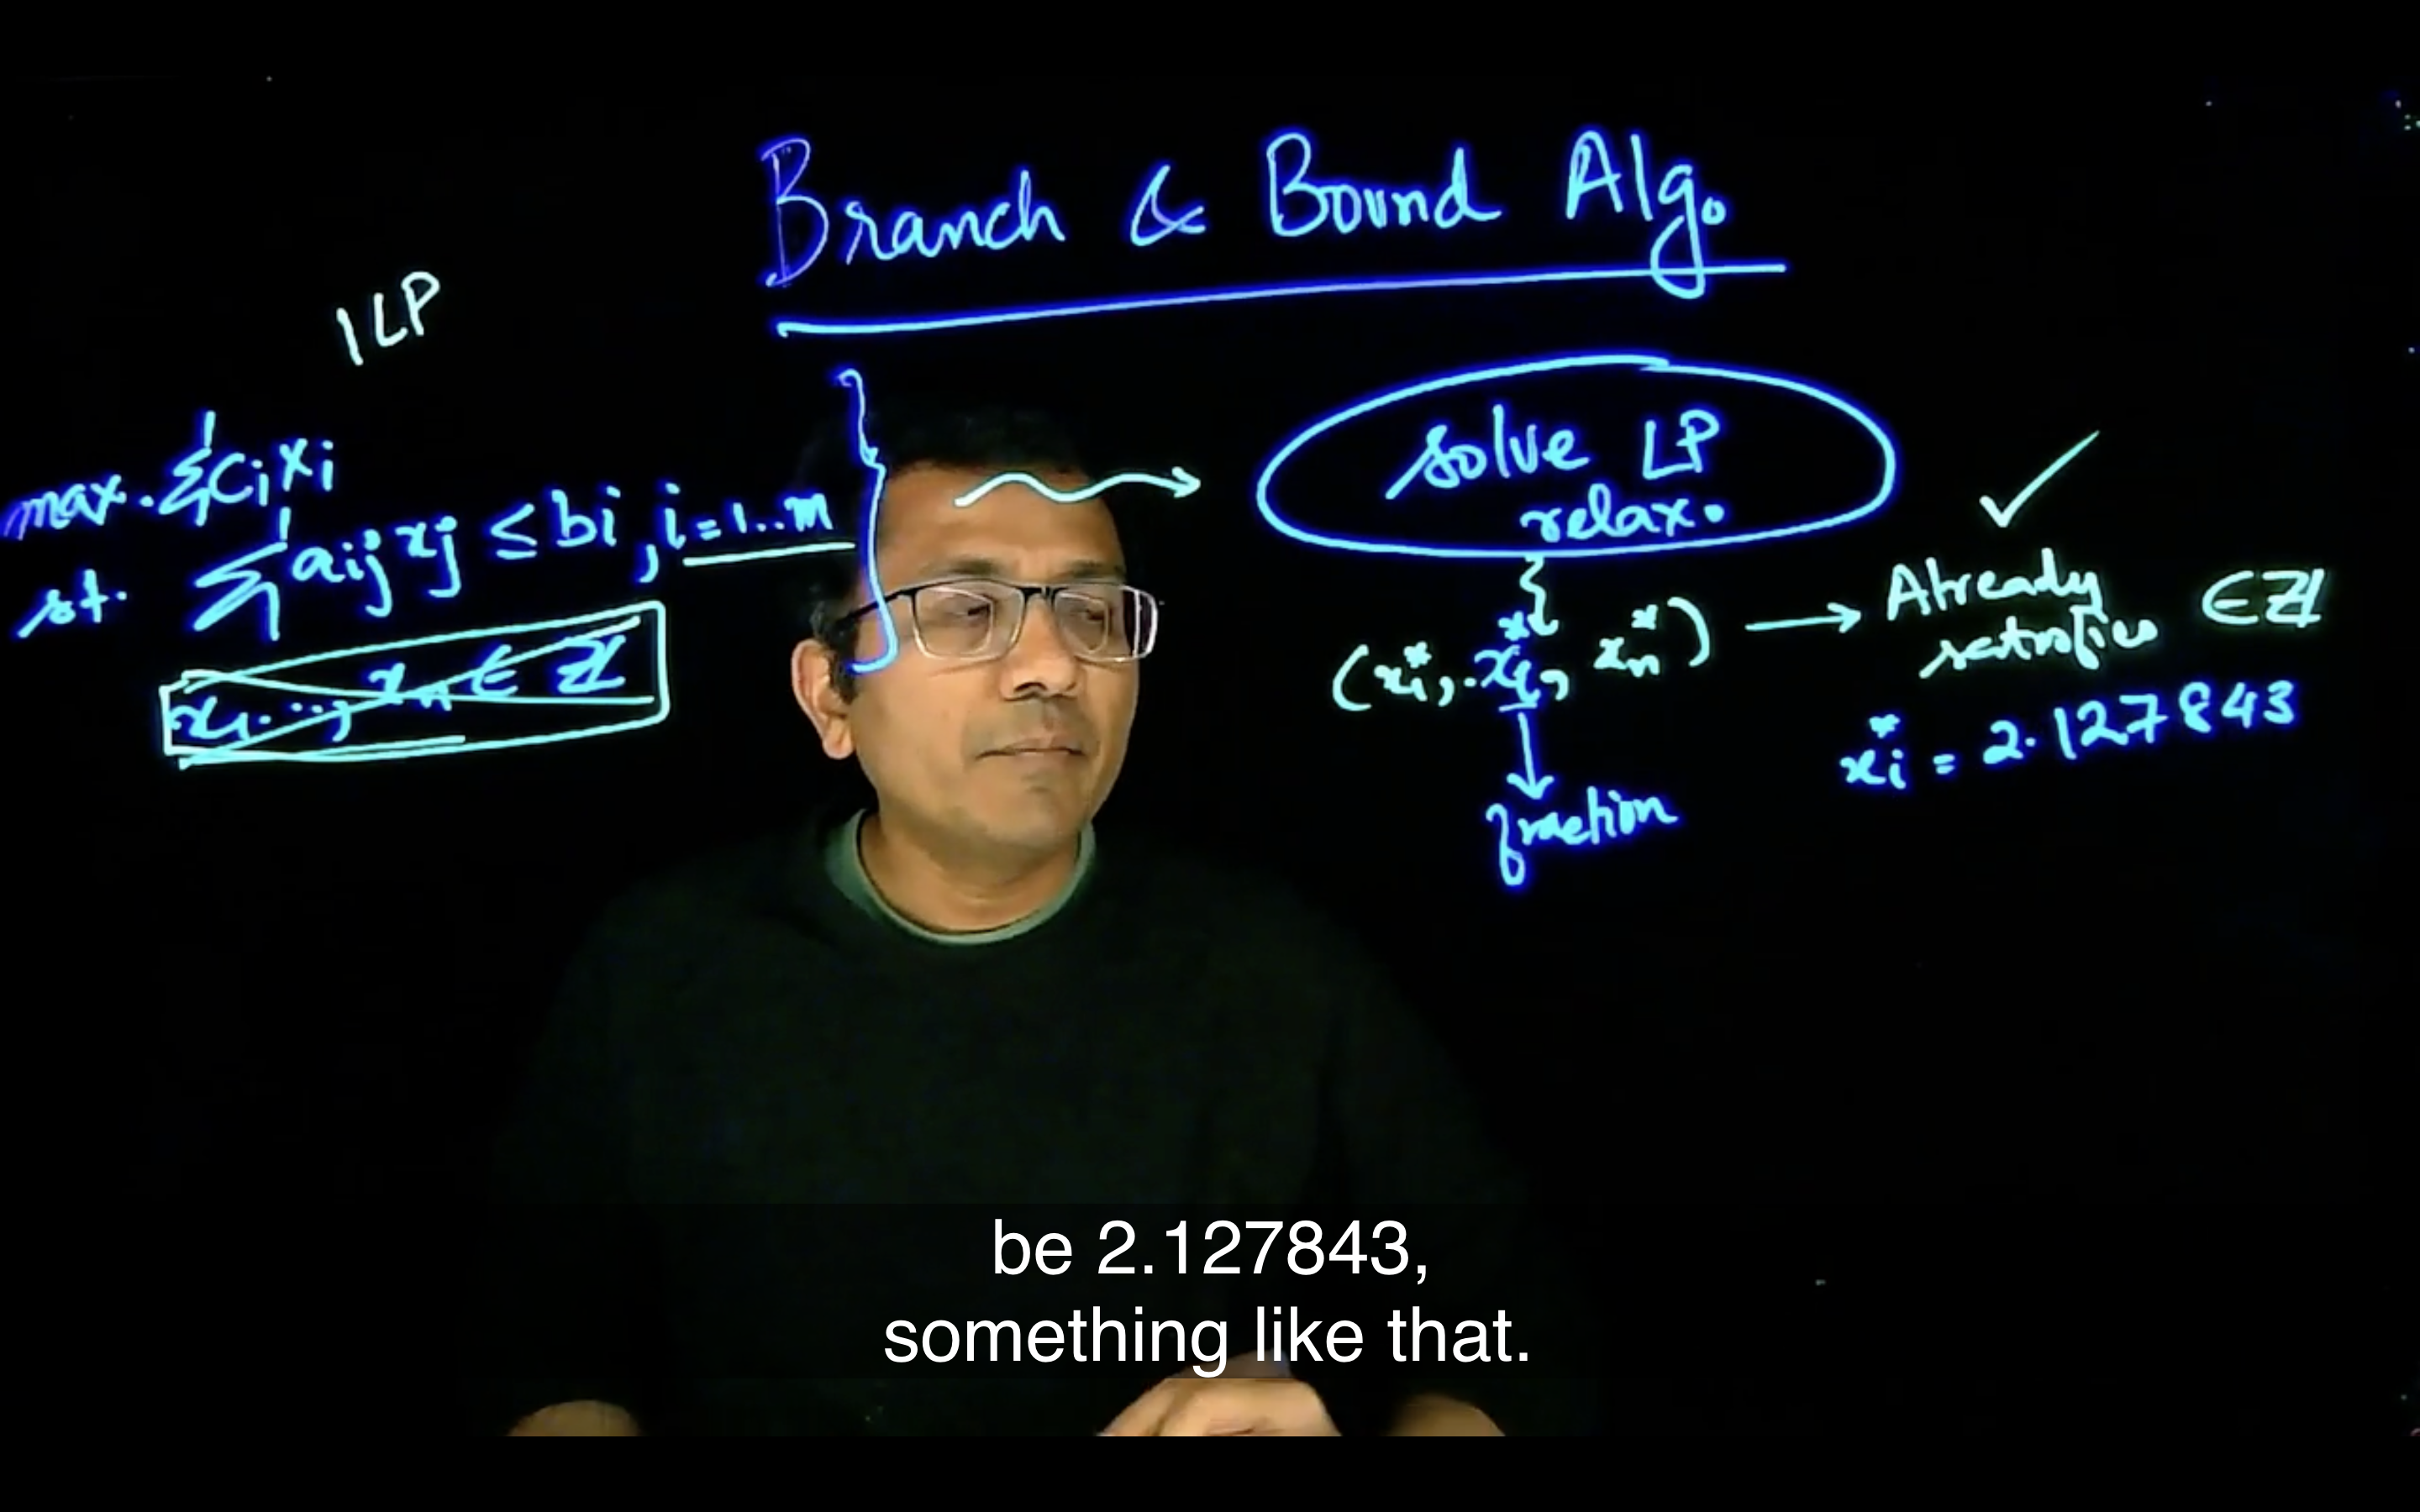 Branch & Bound Algo.
ILP
max. Σ cᵢ xᵢ
st. Σ aᵢⱼ xⱼ ≤ bᵢ, i = 1..m
x₁..., xₙ ∈ ℤ
solve LP
relax.
(x₁*, .xᵢ*, xₙ*) → Already
satisfies ∈ ℤ
xᵢ* = 2.127843
fraction
be 2.127843,
something like that.